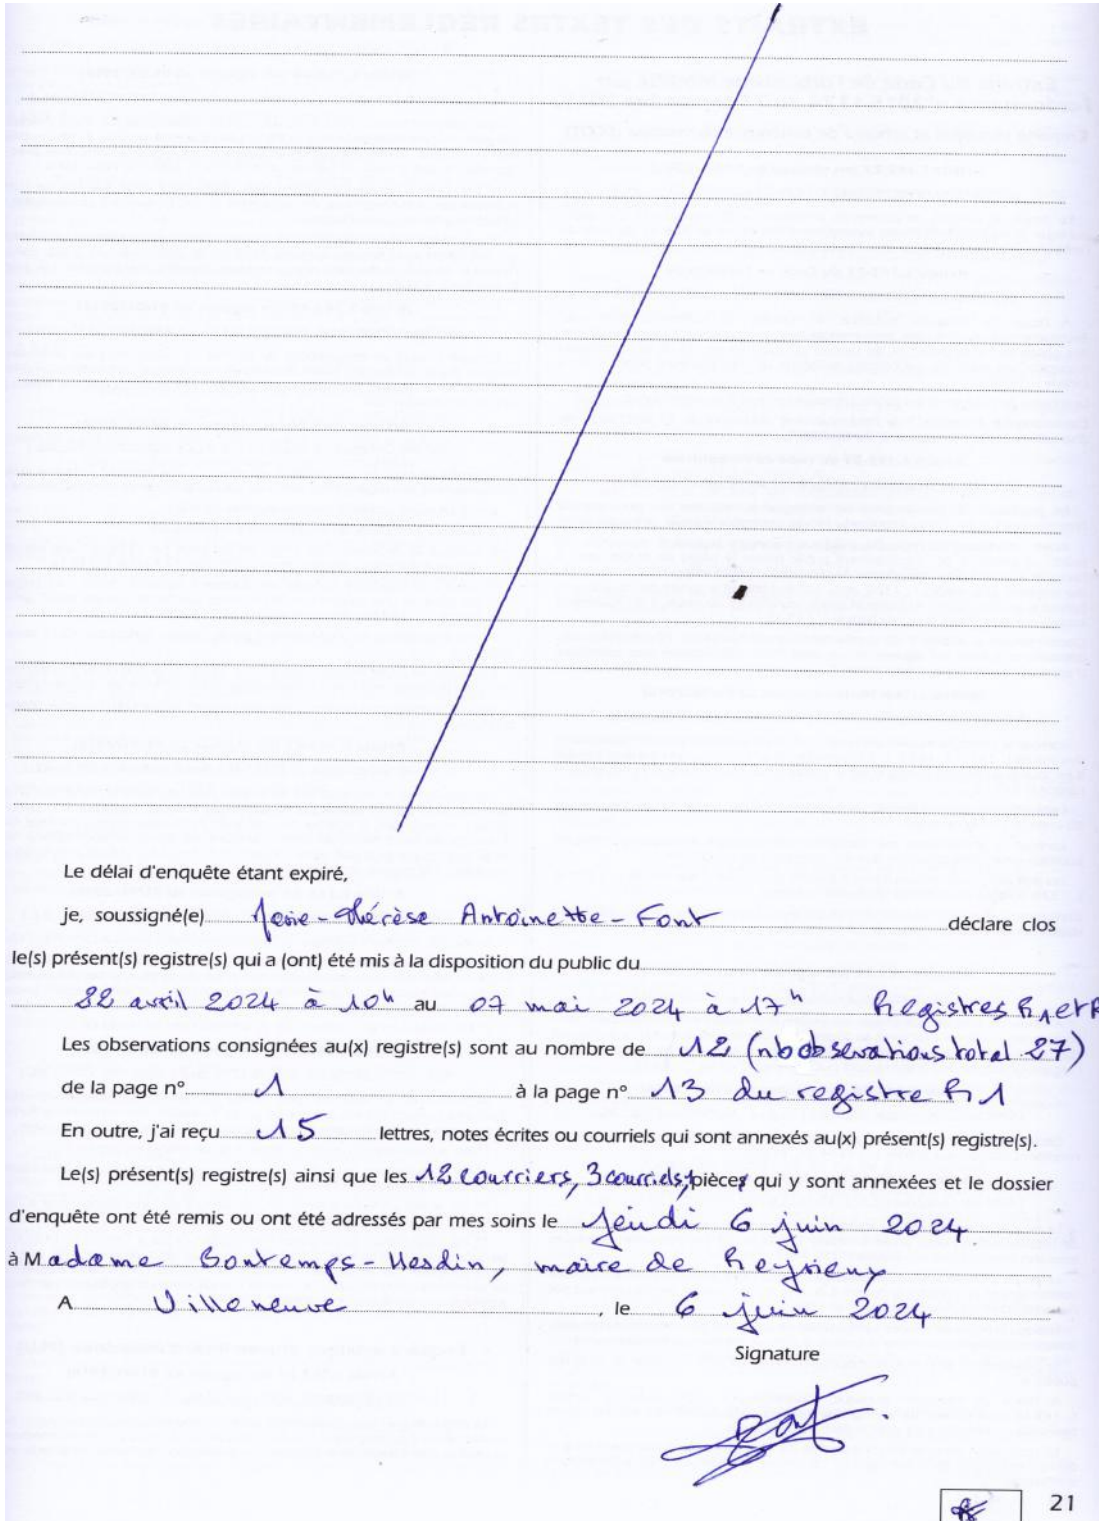 Le délai d'enquête étant expiré,
je, soussigné(e) Marie-Thérèse Antoinette-Font déclare clos
le(s) présent(s) registre(s) qui a (ont) été mis à la disposition du public du
22 avril 2024 à 10h au 07 mai 2024 à 17h Registres R1 et R
Les observations consignées au(x) registre(s) sont au nombre de 12 (nb observations total 27)
de la page n° 1 à la page n° 13 du registre R1
En outre, j'ai reçu 15 lettres, notes écrites ou courriels qui sont annexés au(x) présent(s) registre(s).
Le(s) présent(s) registre(s) ainsi que les 12 courriers, 3 courriels, pièces qui y sont annexées et le dossier
d'enquête ont été remis ou ont été adressés par mes soins le Jeudi 6 juin 2024
à Madame Bontemps-Hesdin, maire de Reyrieux
A Villeneuve, le 6 juin 2024
Signature
21